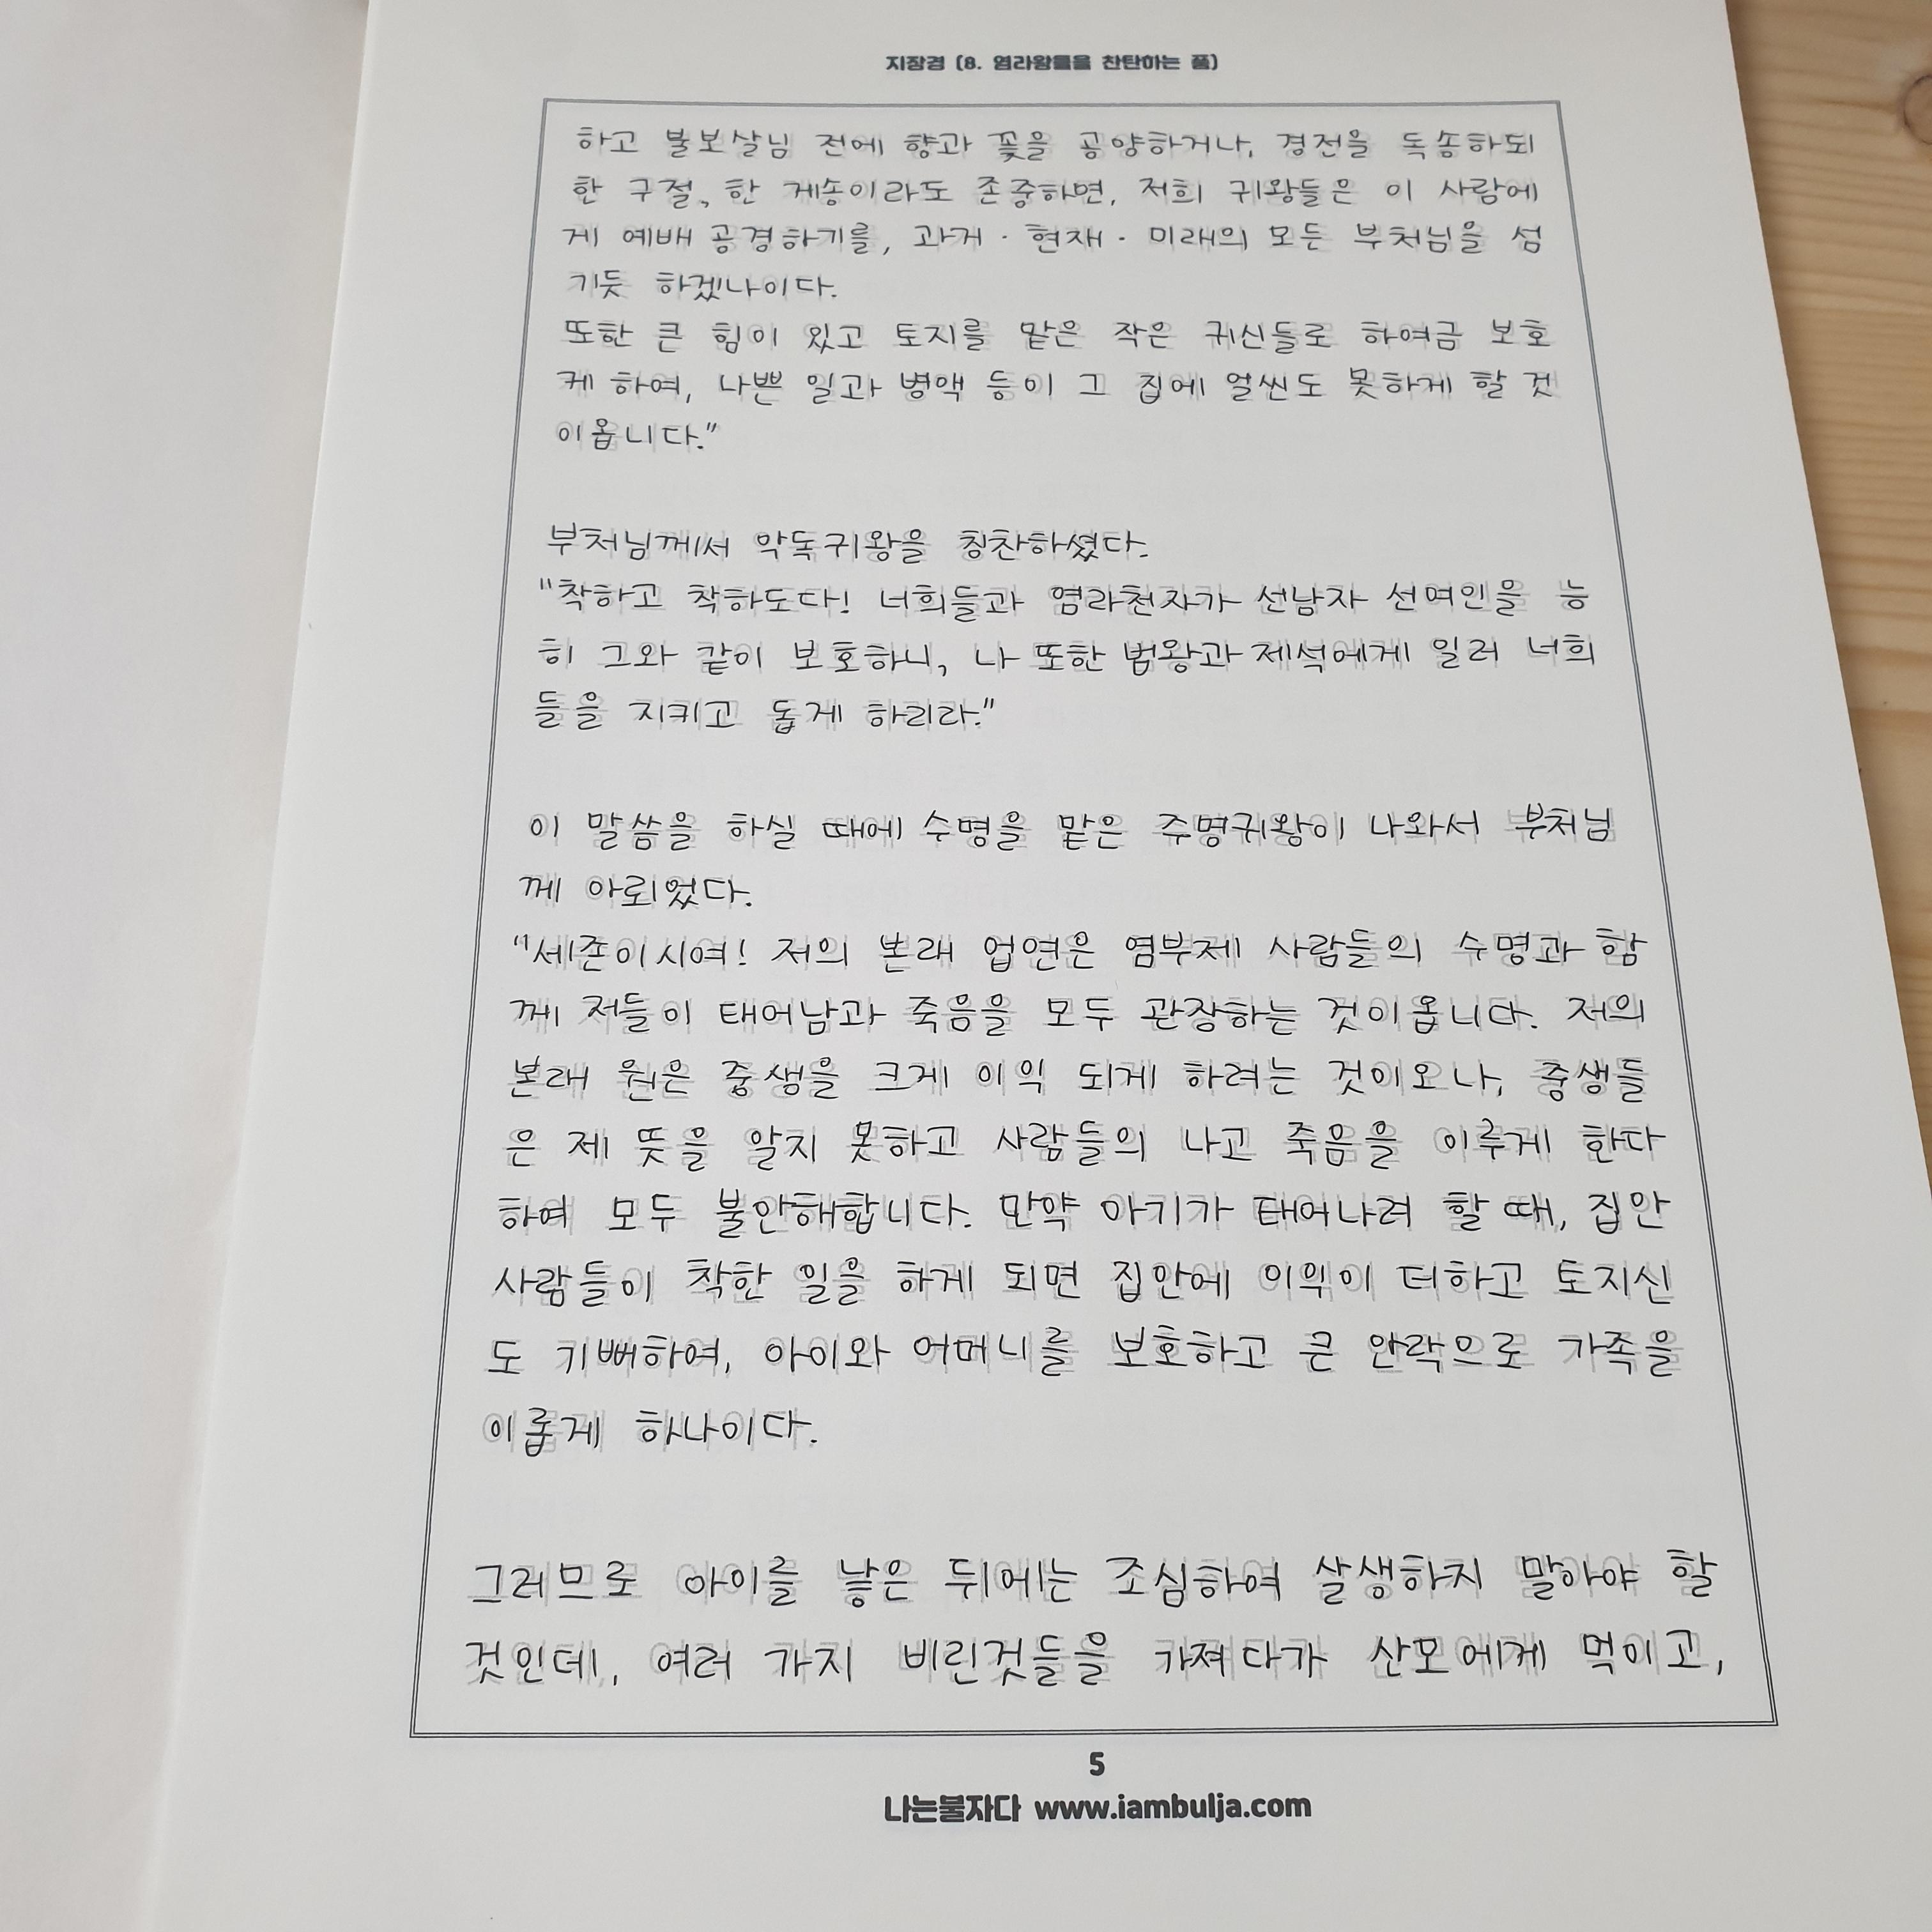 지장경 (8. 염라왕들을 찬탄하는 품)
하고 불보살님 전에 향과 꽃을 공양하거나, 경전을 독송하되
한 구절, 한 게송이라도 존중하면, 저희 귀왕들은 이 사람에
게 예배 공경하기를, 과거 · 현재 · 미래의 모든 부처님을 섬
기듯 하겠나이다.
또한 큰 힘이 있고 토지를 맡은 작은 귀신들로 하여금 보호
케 하여, 나쁜 일과 병액 등이 그 집에 얼씬도 못하게 할 것
이옵니다."
부처님께서 악독귀왕을 칭찬하셨다.
"착하고 착하도다! 너희들과 염라천자가 선남자 선여인을 능
히 그와 같이 보호하니, 나 또한 범왕과 제석에게 일러 너희
들을 지키고 돕게 하리라."
이 말씀을 하실 때에 수명을 맡은 주명귀왕이 나와서 부처님
께 아뢰었다.
"세존이시여! 저의 본래 업연은 염부제 사람들의 수명과 함
께 저들이 태어남과 죽음을 모두 관장하는 것이옵니다. 저의
본래 원은 중생을 크게 이익 되게 하려는 것이오나, 중생들
은 제 뜻을 알지 못하고 사람들의 나고 죽음을 이루게 한다
하여 모두 불안해합니다. 만약 아기가 태어나려 할 때, 집안
사람들이 착한 일을 하게 되면 집안에 이익이 더하고 토지신
도 기뻐하여, 아이와 어머니를 보호하고 큰 안락으로 가족을
이롭게 하나이다.
그러므로 아이를 낳은 뒤에는 조심하여 살생하지 말아야 할
것인데, 여러 가지 비린것들을 가져다가 산모에게 먹이고,
5
나는불자다 www.iambulja.com